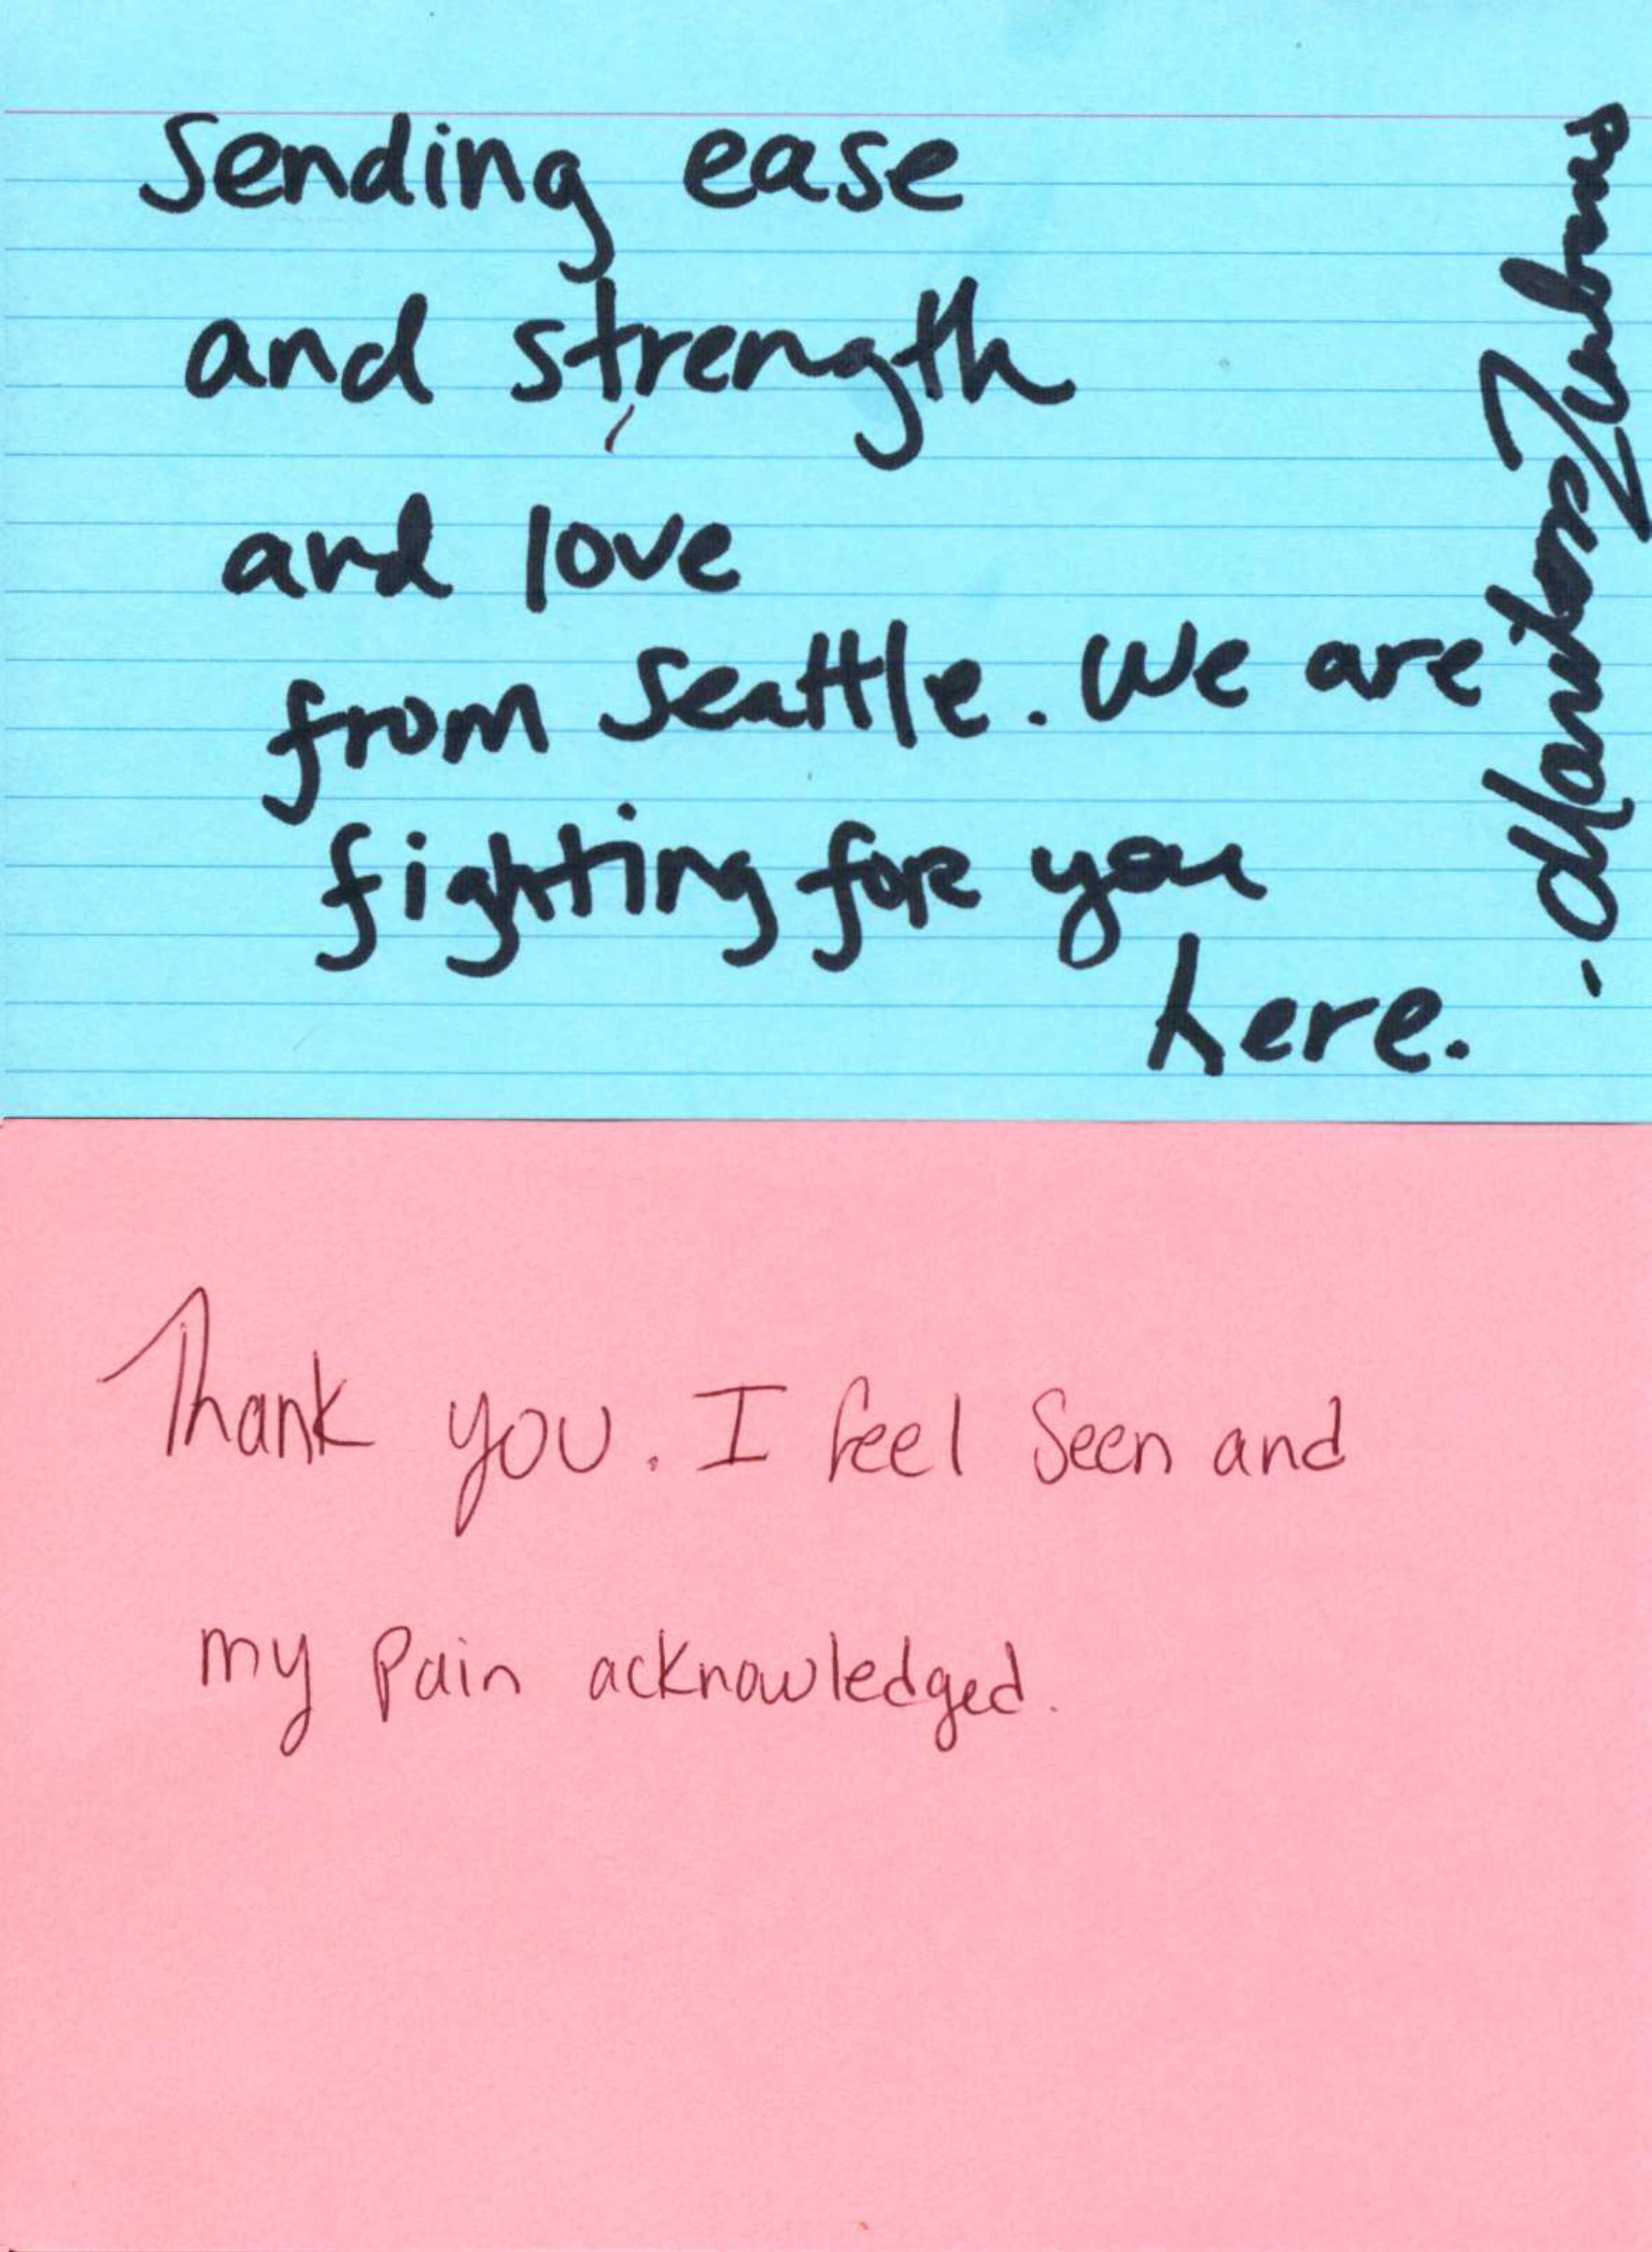 Sending ease
and strength
and love
from Seattle. We are
fighting for you
here.
Thank you. I feel seen and
my pain acknowledged.